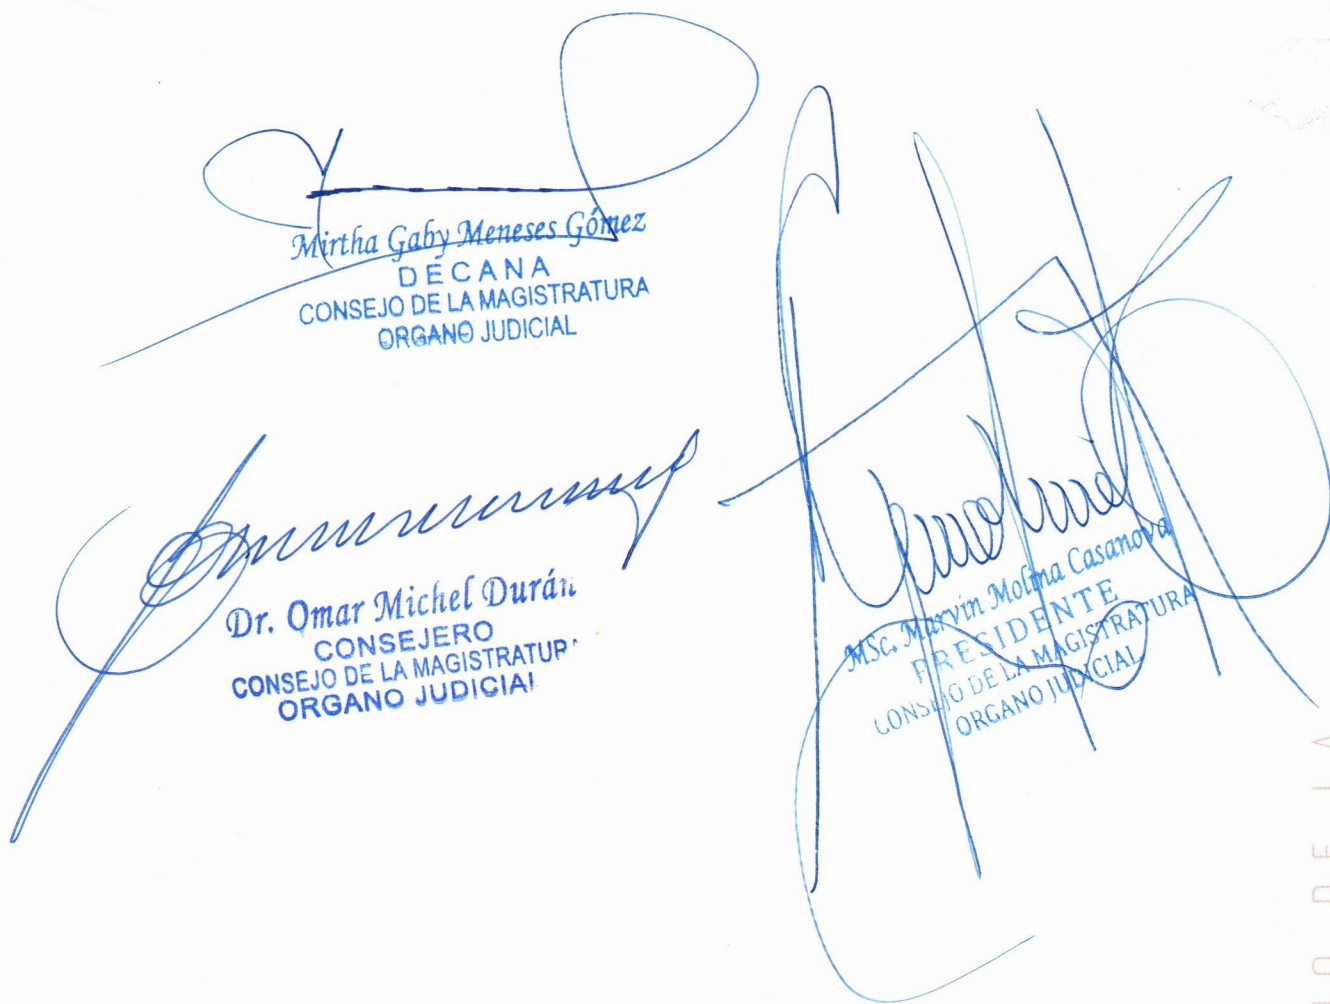 Mirtha Gaby Meneses Gómez
DECANA
CONSEJO DE LA MAGISTRATURA
ORGANO JUDICIAL
Dr. Omar Michel Durán
CONSEJERO
CONSEJO DE LA MAGISTRATUR
ORGANO JUDICIAL
MSc. Marvin Molina Casanova
PRESIDENTE
CONSEJO DE LA MAGISTRATURA
ORGANO JUDICIAL